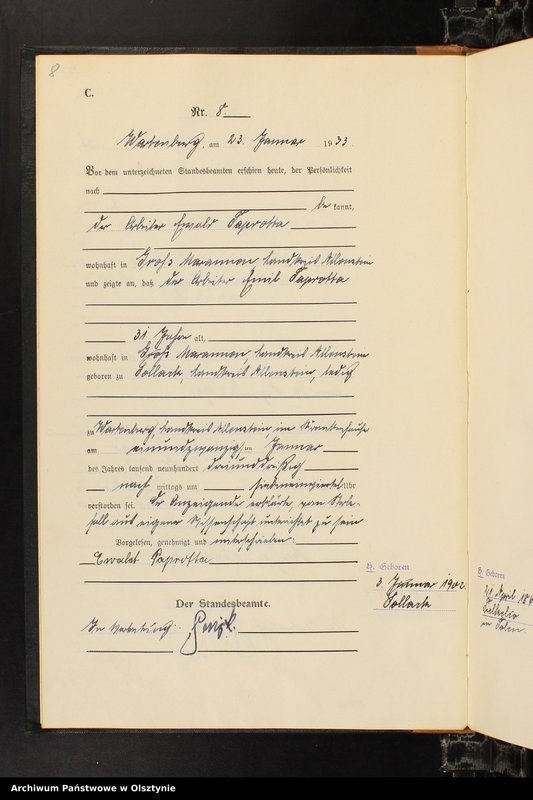 8
C.
Nr. 8.
Wartenburg, am 23. Januar 1933.
Vor dem unterzeichneten Standesbeamten erschien heute, der Persönlichkeit
nach
be kannt,
der Arbeiter Ewald Taprotta
wohnhaft in Groß Maraunen, Landkreis Allenstein
und zeigte an, daß der Arbeiter Emil Taprotta
31 Jahre alt,
wohnhaft in Groß Maraunen, Landkreis Allenstein
geboren zu Tollack, Landkreis Allenstein, ledig
zu Wartenburg, Landkreis Allenstein im Krankenhause
am einundzwanzigten Januar
des Jahres tausend neunhundert dreiunddreißig
nach mittags um Uhr
verstorben sei. Der Anzeigende erklärte, vom Sterbe-
fall aus eigener Wissenschaft unterrichtet zu sein
Vorgelesen, genehmigt und unterschrieben:
Ewald Taprotta
Der Standesbeamte.
In Vertretung:
H. Geboren
3. Januar 1902.
Tollack
H. Geboren
April
in Polen
Archiwum Państwowe w Olsztynie